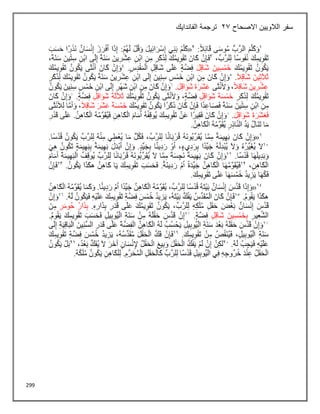 سفر اللاويين الاصحاح ٢٧ ترجمة الفاندايك
١وَكَلَّمَ الرَّبُّ مُوسَى قَائِلًا: ٢«كَلِّمْ بَنِي إِسْرَائِيلَ وَقُلْ لَهُمْ: إِذَا أَفْرَزَ إِنْسَانٌ نَذْرًا حَسَبَ
تَقْوِيمِكَ نُفُوسًا لِلرَّبِّ، ٣فَإِنْ كَانَ تَقْوِيمُكَ لِذَكَرٍ مِنِ ابْنِ عِشْرِينَ سَنَةً إِلَى ابْنِ سِتِّينَ سَنَةً،
يَكُونُ تَقْوِيمُكَ خَمْسِينَ شَاقِلَ فِضَّةٍ عَلَى شَاقِلِ الْمَقْدِسِ. ٤وَإِنْ كَانَ أُنْثَى يَكُونُ تَقْوِيمُكَ
ثَلاَثِينَ شَاقِلًا. ٥وَإِنْ كَانَ مِنِ ابْنِ خَمْسِ سِنِينَ إِلَى ابْنِ عِشْرِينَ سَنَةً يَكُونُ تَقْوِيمُكَ لِذَكَرٍ
عِشْرِينَ شَاقِلًا، وَلأُنْثَى عَشَرَةَ شَوَاقِلَ. ٦وَإِنْ كَانَ مِنِ ابْنِ شَهْرٍ إِلَى ابْنِ خَمْسِ سِنِينَ يَكُونُ
تَقْوِيمُكَ لِذَكَرٍ خَمْسَةَ شَوَاقِلِ فِضَّةٍ، وَلأُنْثَى يَكُونُ تَقْوِيمُكَ ثَلاَثَةَ شَوَاقِلِ فِضَّةٍ. ٧وَإِنْ كَانَ
مِنِ ابْنِ سِتِّينَ سَنَةً فَصَاعِدًا فَإِنْ كَانَ ذَكَرًا يَكُونُ تَقْوِيمُكَ خَمْسَةَ عَشَرَ شَاقِلًا، وَأَمَّا لِلأُنْثَى
فَعَشَرَةَ شَوَاقِلَ. ٨وَإِنْ كَانَ فَقِيرًا عَنْ تَقْوِيمِكَ يُوقِفُهُ أَمَامَ الْكَاهِنِ فَيُقَوِّمُهُ الْكَاهِنُ. عَلَى قَدْرِ
مَا تَنَالُ يَدُ النَّاذِرِ يُقَوِّمُهُ الْكَاهِنُ.
٩«وَإِنْ كَانَ بَهِيمَةً مِمَّا يُقَرِّبُونَهُ قُرْبَانًا لِلرَّبِّ، فَكُلُّ مَا يُعْطِي مِنْهُ لِلرَّبِّ يَكُونُ قُدْسًا.
١٠لاَ يُغَيِّرُهُ وَلاَ يُبْدِلُهُ جَيِّدًا بِرَدِيءٍ، أَوْ رَدِيئًا بِجَيِّدٍ. وَإِنْ أَبْدَلَ بَهِيمَةً بِبَهِيمَةٍ تَكُونُ هِيَ
وَبَدِيلُهَا قُدْسًا. ١١وَإِنْ كَانَ بَهِيمَةً نَجِسَةً مِمَّا لاَ يُقَرِّبُونَهُ قُرْبَانًا لِلرَّبِّ يُوقِفُ الْبَهِيمَةَ أَمَامَ
الْكَاهِنِ، ١٢فَيُقَوِّمُهَا الْكَاهِنُ جَيِّدَةً أَمْ رَدِيئَةً. فَحَسَبَ تَقْوِيمِكَ يَا كَاهِنُ هكَذَا يَكُونُ. ١٣فَإِنْ
فَكَّهَا يَزِيدُ خُمْسَهَا عَلَى تَقْوِيمِكَ.
١٤«وَإِذَا قَدَّسَ إِنْسَانٌ بَيْتَهُ قُدْسًا لِلرَّبِّ، يُقَوِّمُهُ الْكَاهِنُ جَيِّدًا أَمْ رَدِيئًا. وَكَمَا يُقَوِّمُهُ الْكَاهِنُ
هكَذَا يَقُومُ. ١٥فَإِنْ كَانَ الْمُقَدِّسُ يَفُكُّ بَيْتَهُ، يَزِيدُ خُمْسَ فِضَّةِ تَقْوِيمِكَ عَلَيْهِ فَيَكُونُ لَهُ. ١٦وَإِنْ
قَدَّسَ إِنْسَانٌ بَعْضَ حَقْلِ مُلْكِهِ لِلرَّبِّ، يَكُونُ تَقْوِيمُكَ عَلَى قَدَرِ بِذَارِهِ. بِذَارُ حُومَرٍ مِنَ
الشَّعِيرِ بِخَمْسِينَ شَاقِلِ فِضَّةٍ. ١٧إِنْ قَدَّسَ حَقْلَهُ مِنْ سَنَةِ الْيُوبِيلِ فَحَسَبَ تَقْوِيمِكَ يَقُومُ.
١٨وَإِنْ قَدَّسَ حَقْلَهُ بَعْدَ سَنَةِ الْيُوبِيلِ يَحْسُبُ لَهُ الْكَاهِنُ الْفِضَّةَ عَلَى قَدَرِ السِّنِينَ الْبَاقِيَةِ إِلَى
سَنَةِ الْيُوبِيلِ، فَيُنَقَّصُ مِنْ تَقْوِيمِكَ. ١٩فَإِنْ فَكَّ الْحَقْلَ مُقَدِّسُهُ، يَزِيدُ خُمْسَ فِضَّةِ تَقْوِيمِكَ
عَلَيْهِ فَيَجِبُ لَهُ. ٢٠لكِنْ إِنْ لَمْ يَفُكَّ الْحَقْلَ وَبِيعَ الْحَقْلُ لإِنْسَانٍ آخَرَ لاَ يُفَكُّ بَعْدُ، ٢١بَلْ يَكُونُ
الْحَقْلُ عِنْدَ خُرُوجِهِ فِي الْيُوبِيلِ قُدْسًا لِلرَّبِّ كَالْحَقْلِ الْمُحَرَّمِ. لِلْكَاهِنِ يَكُونُ مُلْكُهُ.
299